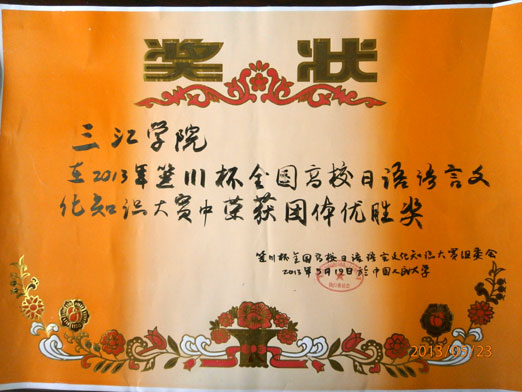 奖状
三江学院
在2013年笹川杯全国高校日语语言文
化知识大赛中荣获团体优胜奖
笹川杯全国高校日语语言文化知识大赛组委会
2013年5月19日於中国人民大学